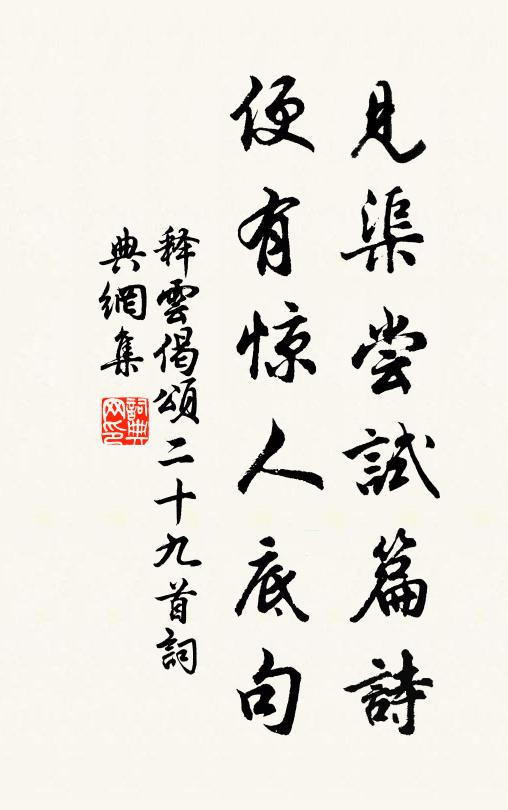 見渠尝試篇詩
便有惊人底句
释雲偈頌二十九首詞
典網集
詞典网印